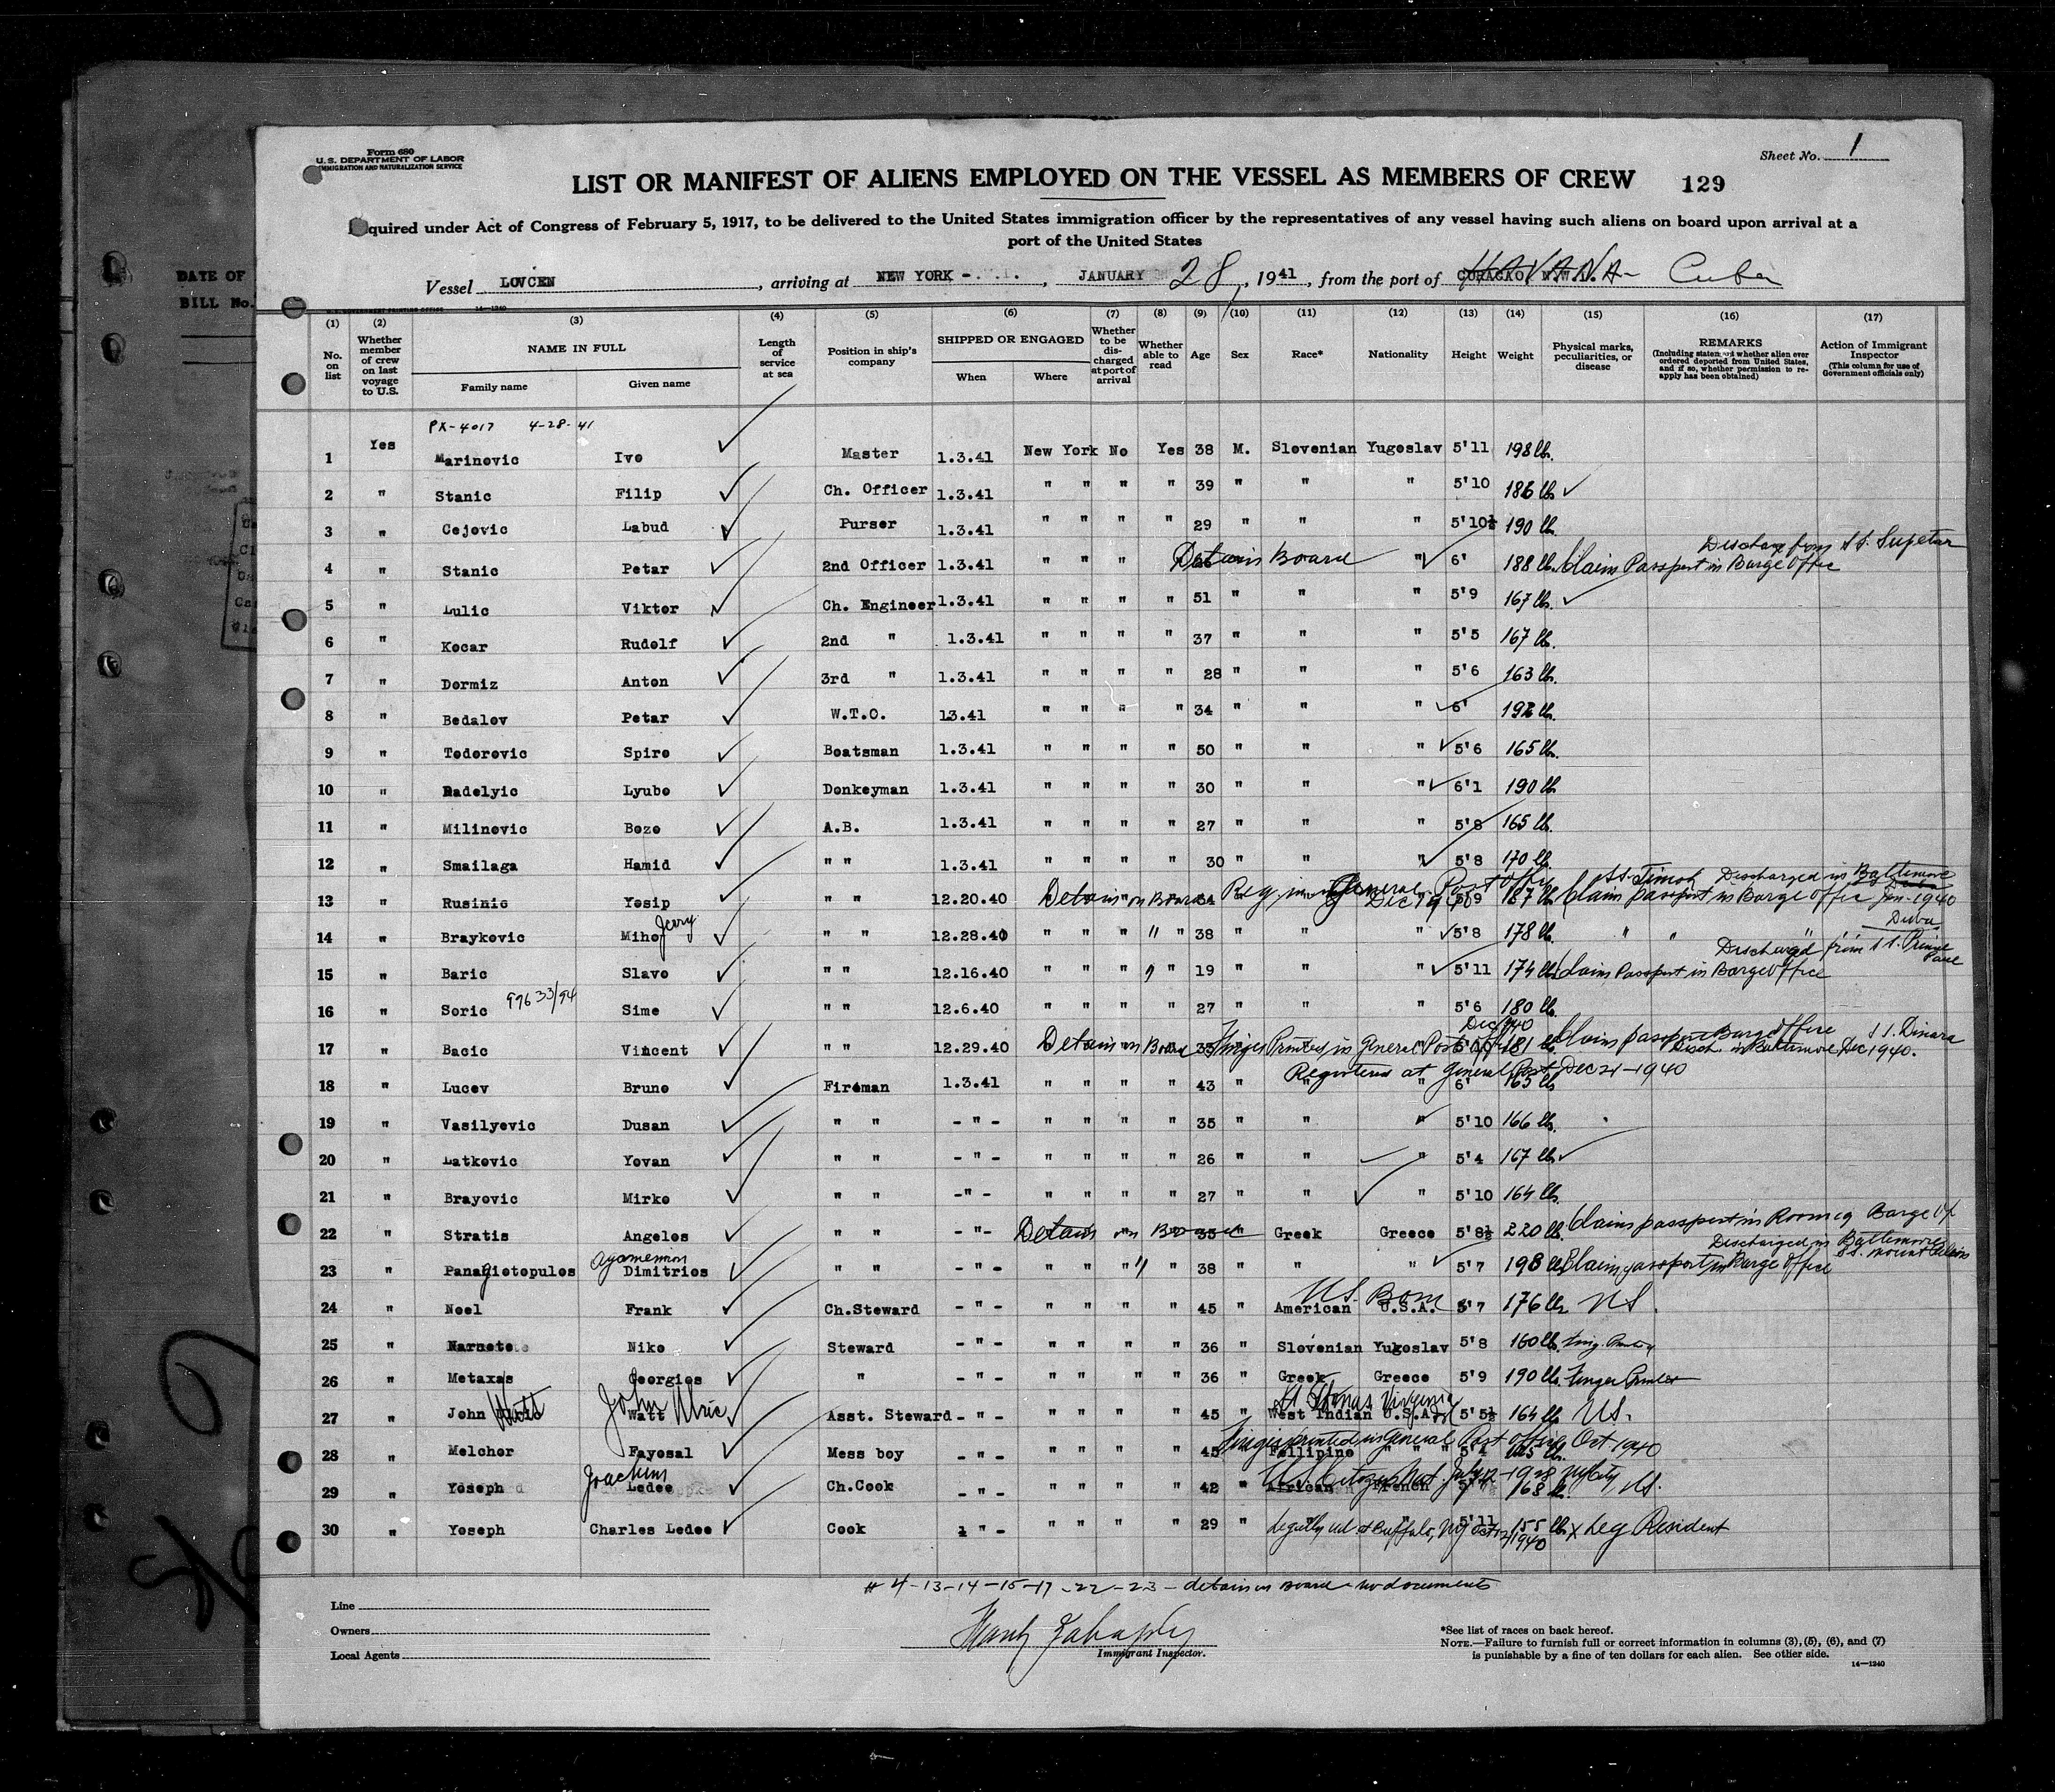 Form 680
U. S. DEPARTMENT OF LABOR
IMMIGRATION AND NATURALIZATION SERVICE
Sheet No. 1
LIST OR MANIFEST OF ALIENS EMPLOYED ON THE VESSEL AS MEMBERS OF CREW 129
quired under Act of Congress of February 5, 1917, to be delivered to the United States immigration officer by the representatives of any vessel having such aliens on board upon arrival at a
port of the United States
DATE OF
BILL No.
Vessel LOVCEN, arriving at NEW YORK, JANUARY 28, 1941, from the port of HAVANA - Cuba
(1) (2) (3) (4) (5) (6) (7) (8) (9) (10) (11) (12) (13) (14) (15) (16) (17)
No. on list
Whether member of crew on last voyage to U.S.
NAME IN FULL
Family name Given name
Length of service at sea
Position in ship's company
SHIPPED OR ENGAGED
When Where
Whether to be discharged at port of arrival
Whether able to read
Age Sex Race* Nationality Height Weight
Physical marks, peculiarities, or disease
REMARKS
(Including statement whether alien ever ordered deported from United States, and if so, whether permission to reapply has been obtained)
Action of Immigrant Inspector
(This column for use of Government officials only)
PX-4017 4-28-41
1 Yes Marinovic Ivo Master 1.3.41 New York No Yes 38 M. Slovenian Yugoslav 5'11 198 lb.
2 " Stanic Filip Ch. Officer 1.3.41 " " " " 39 " " " 5'10 186 lb
3 " Cejovic Labud Purser 1.3.41 " " " " 29 " " " 5'10½ 190 lb.
Discharg from SS. Supetar
4 " Stanic Petar 2nd Officer 1.3.41 " " " Detain Board " 6' 188 lb. Claims Passport in Barge Office
5 " Lulic Viktor Ch. Engineer 1.3.41 " " " " 51 " " " 5'9 167 lb.
6 " Kocar Rudolf 2nd " 1.3.41 " " " " 37 " " " 5'5 167 lb.
7 " Dormiz Anton 3rd " 1.3.41 " " " " 28 " " " 5'6 163 lb.
8 " Bedalov Petar W.T.O. 13.41 " " " " 34 " " " 6' lb.
9 " Todorovic Spiro Boatsman 1.3.41 " " " " 50 " " " 5'6 165 lb.
10 " Radelyic Lyubo Donkeyman 1.3.41 " " " " 30 " " " 6'1 190 lb
11 " Milinovic Bozo A.B. 1.3.41 " " " " 27 " " " 5'8 165 lb.
12 " Smailaga Hamid " " 1.3.41 " " " " 30 " " " 5'8 170 lb.
SS. Timok Discharged in Baltimore
13 " Rusinic Yosip " " 12.20.40 Detain on Board Reg. in General Post Office Dec 19 5'9 187 lb Claims passport in Barge Office Jan-1940
Duba
14 " Braykovic Miho Jerry " " 12.28.40 " " " " 38 " " " 5'8 178 lb. " "
Discharged from SS. Prince Paul
15 " Baric Slavo " " 12.16.40 " " " " 19 " " " 5'11 174 lb. Claims Passport in Barge Office
16 " Soric 99633/94 Sime " " 12.6.40 " " " " 27 " " " 5'6 180 lb.
Dec/940
17 " Bacic Vincent " " 12.29.40 Detain on Board Finger Printed in General Post Office 5'10 181 lb Claims passport Barge Office SS. Dinara
Disch. in Baltimore Dec 1940.
Registered at General Post Dec 21-1940
18 " Lucev Bruno Fireman 1.3.41 " " " " 43 " " " 6' 165 lb
19 " Vasilyevic Dusan " " - " - " " " " 35 " " " 5'10 166 lb.
20 " Latkovic Yovan " " - " - " " " " 26 " " " 5'4 167 lb
21 " Brayovic Mirko " " - " - " " " " 27 " " " 5'10 164 lb.
22 " Stratis Angelos " " - " - Detain on Board 35 " Greek Greece 5'8½ 220 lb. Claims passport in Room 9 Barge Of
Discharged in Baltimore
23 " Panagiotopulos Agamemnon Dimitrios " " - " - " " " " 38 " " " 5'7 198 lb Claims passport in Barge Office
US. Born
24 " Noel Frank Ch.Steward - " - " " " " 45 " American U.S.A. 5'7 176 lb US.
25 " Niko Steward - " - " " " " 36 " Slovenian Yugoslav 5'8 160 lb.
26 " Metaxas Georgios " - " - " " " " 36 " Greek Greece 5'9 190 lb. Finger Printed
St Thomas Virginia
27 " John Watt John Ulric Asst. Steward - " - " " " " 45 " West Indian U.S.A. 5'5½ 164 lb US.
Fingerprinted in General Post Office Oct 1940
28 " Melchor Fayosal Mess boy - " - " " " " 45 Fillipino " " 5'4 lb.
U.S. Citizen Nat. July 12-1928 NY City
29 " Yoseph Joachim Ledee Ch.Cook - " - " " " " 42 " African French 5'7 168 lb. US.
30 " Yoseph Charles Ledee Cook 1 " - " " " " 29 " Legally ad at Buffalo, NY Oct 12/1940 5'11 155 lb x Leg Resident
# 4-13-14-15-17-22-23- detain on Board - no documents
Line
Owners
Local Agents
Immigrant Inspector.
*See list of races on back hereof.
NOTE.—Failure to furnish full or correct information in columns (3), (5), (6), and (7)
is punishable by a fine of ten dollars for each alien. See other side.
14—1240